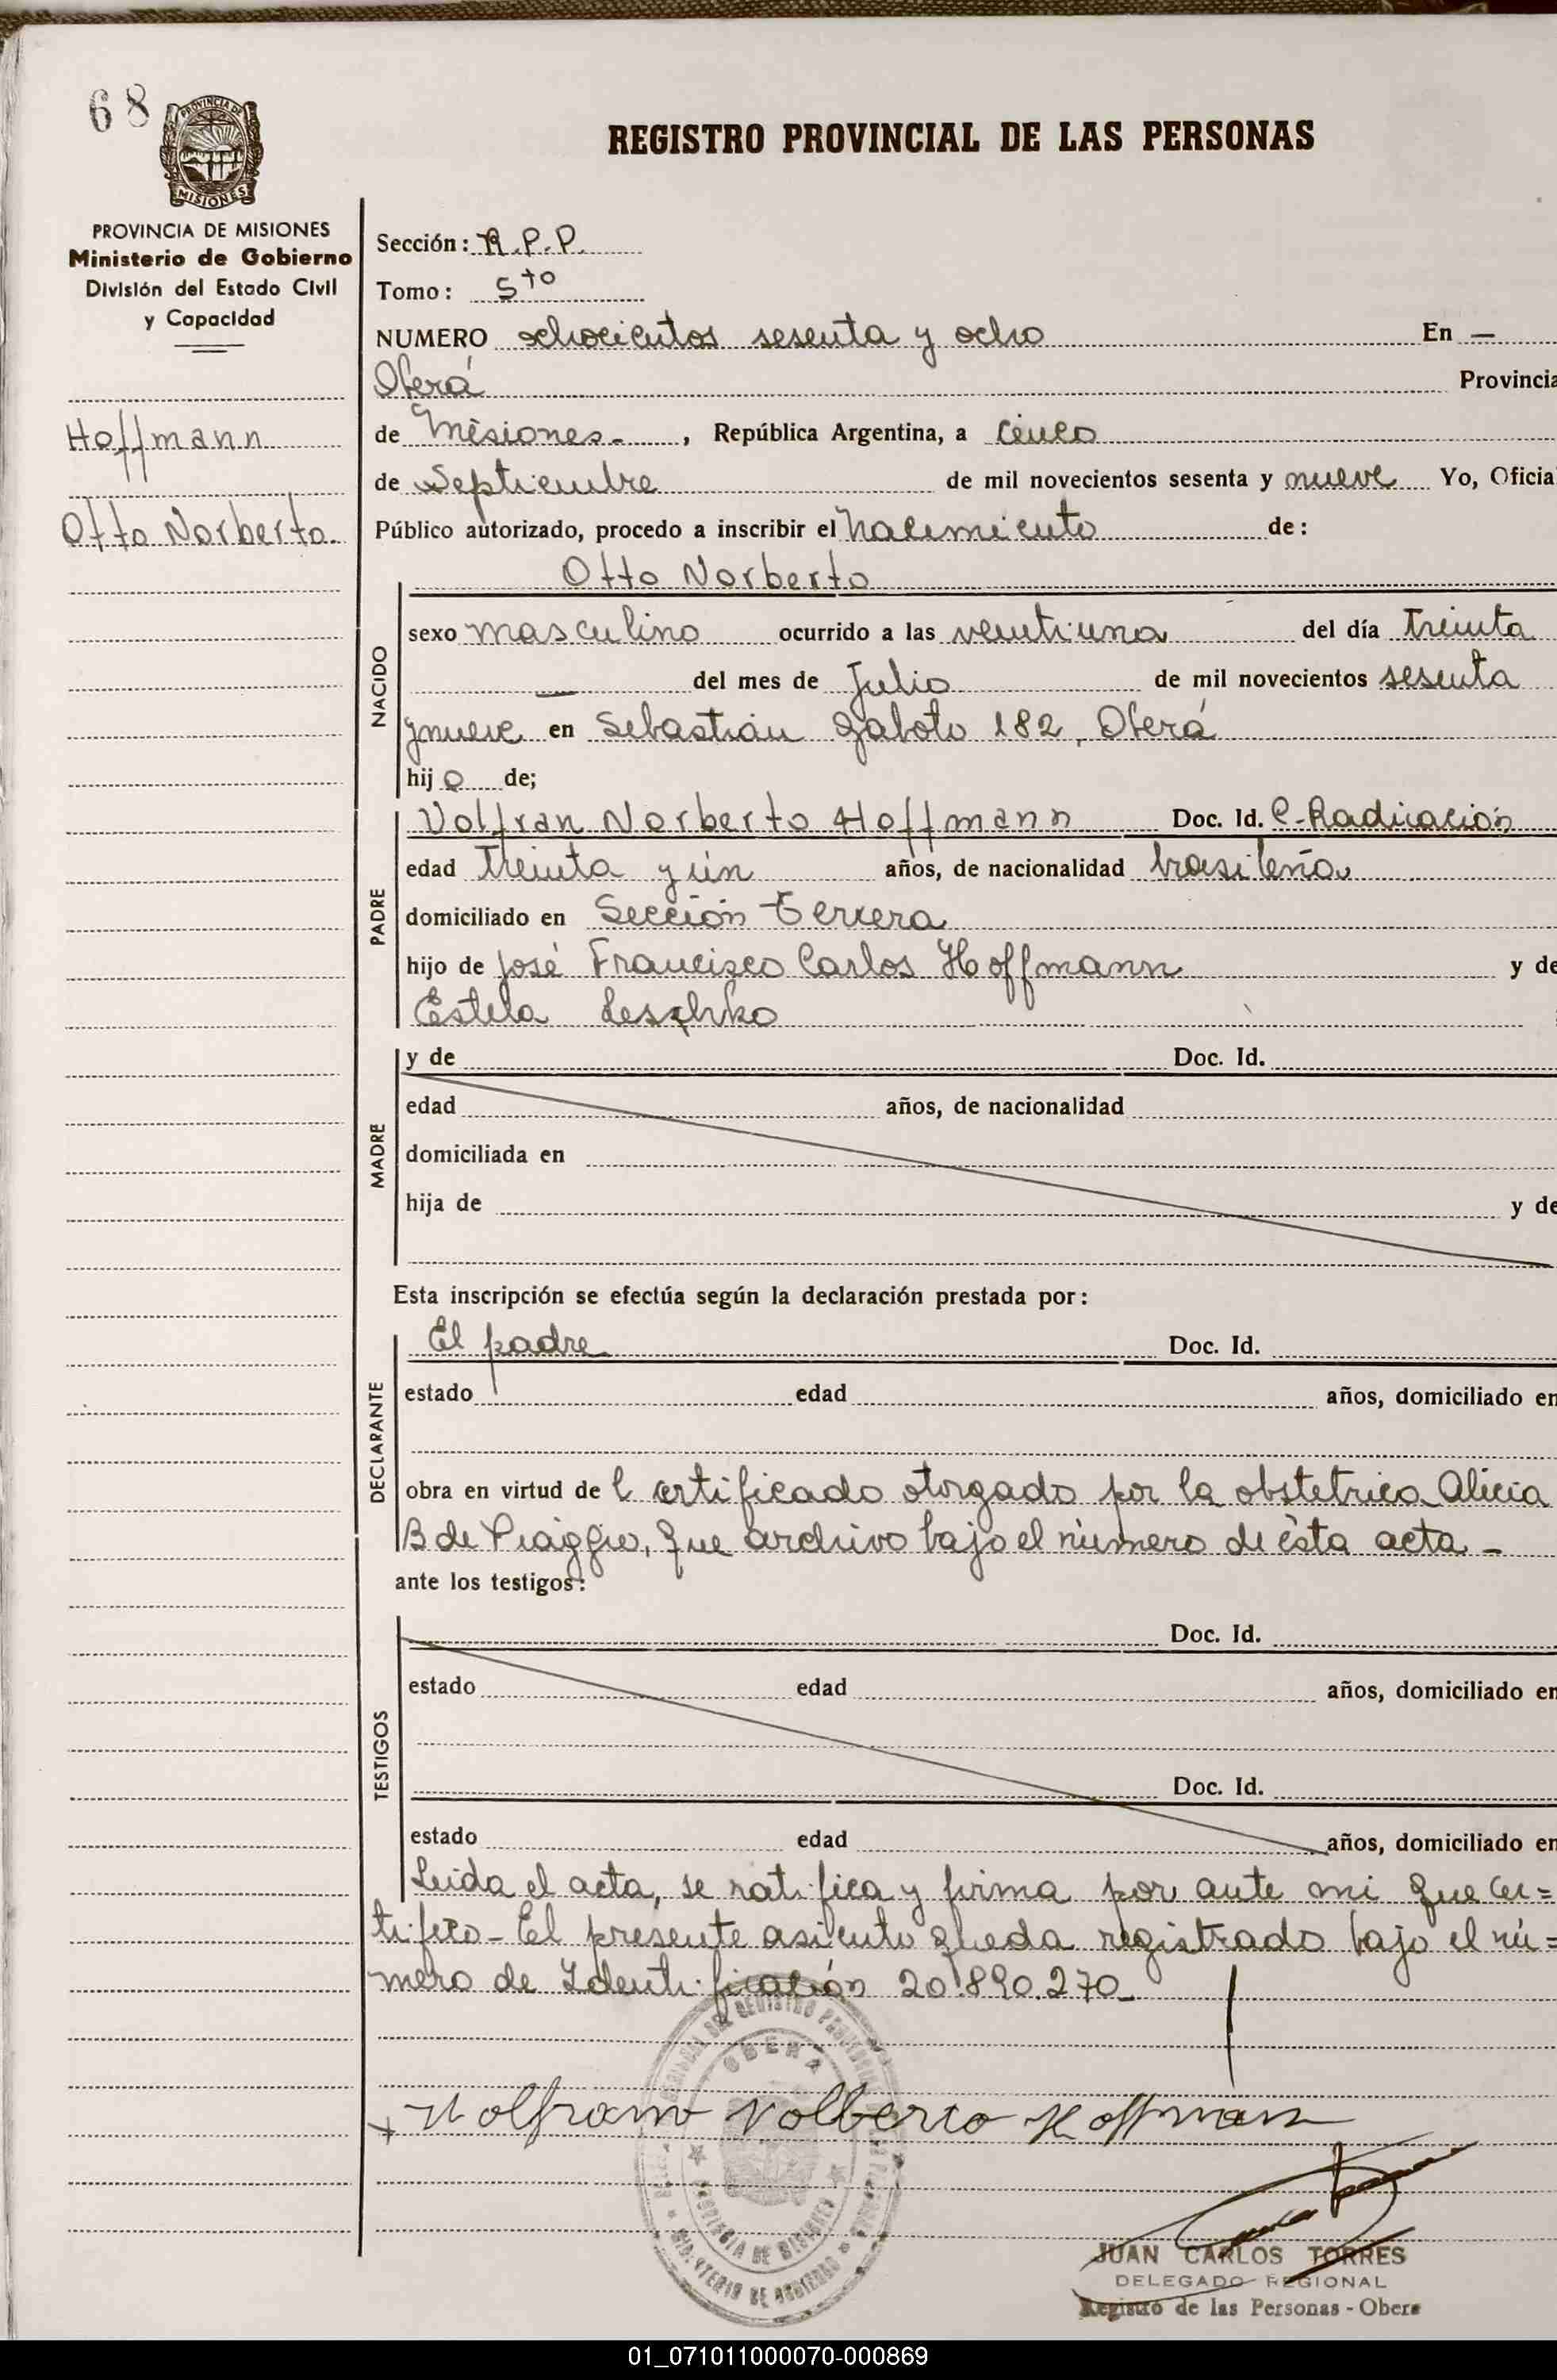 68
PROVINCIA DE
MISIONES
REGISTRO PROVINCIAL DE LAS PERSONAS
PROVINCIA DE MISIONES
Ministerio de Gobierno
División del Estado Civil
y Capacidad
Hoffmann
Otto Norberto.
Sección: R.P.P.
Tomo: 5to
NUMERO ochocientos sesenta y ocho En —
Oberá Provincia
de Misiones. , República Argentina, a cinco
de Septiembre de mil novecientos sesenta y nueve Yo, Oficial
Público autorizado, procedo a inscribir el nacimiento de:
Otto Norberto
NACIDO
sexo masculino ocurrido a las veintiuna del día treinta
— del mes de Julio de mil novecientos sesenta
y nueve en Sebastián Gaboto 182, Oberá
hijo de;
PADRE
Volfran Norberto Hoffmann Doc. Id. C. Radicación
edad treinta y un años, de nacionalidad brasileña
domiciliado en Sección Tercera
hijo de José Francisco Carlos Hoffmann y de
Estela Leschko
MADRE
y de Doc. Id.
edad años, de nacionalidad
domiciliada en
hija de y de
Esta inscripción se efectúa según la declaración prestada por:
DECLARANTE
El padre Doc. Id.
estado edad años, domiciliado en
obra en virtud de l certificado otorgado por la obstetrica Alicia
B de Piaggio, que archivo bajo el número de ésta acta -
ante los testigos:
TESTIGOS
Doc. Id.
estado edad años, domiciliado en
Doc. Id.
estado edad años, domiciliado en
Leida el acta, se ratifica y firma por ante mi que cer=
tifico - El presente asiento queda registrado bajo el nú=
mero de Identificación 20.890.270_
OBERA
PROVINCIA DE MISIONES
MINISTERIO DE GOBIERNO
Wolframo Nolberto Hoffmann
JUAN CARLOS TORRES
DELEGADO REGIONAL
Registro de las Personas - Obera
01_071011000070-000869